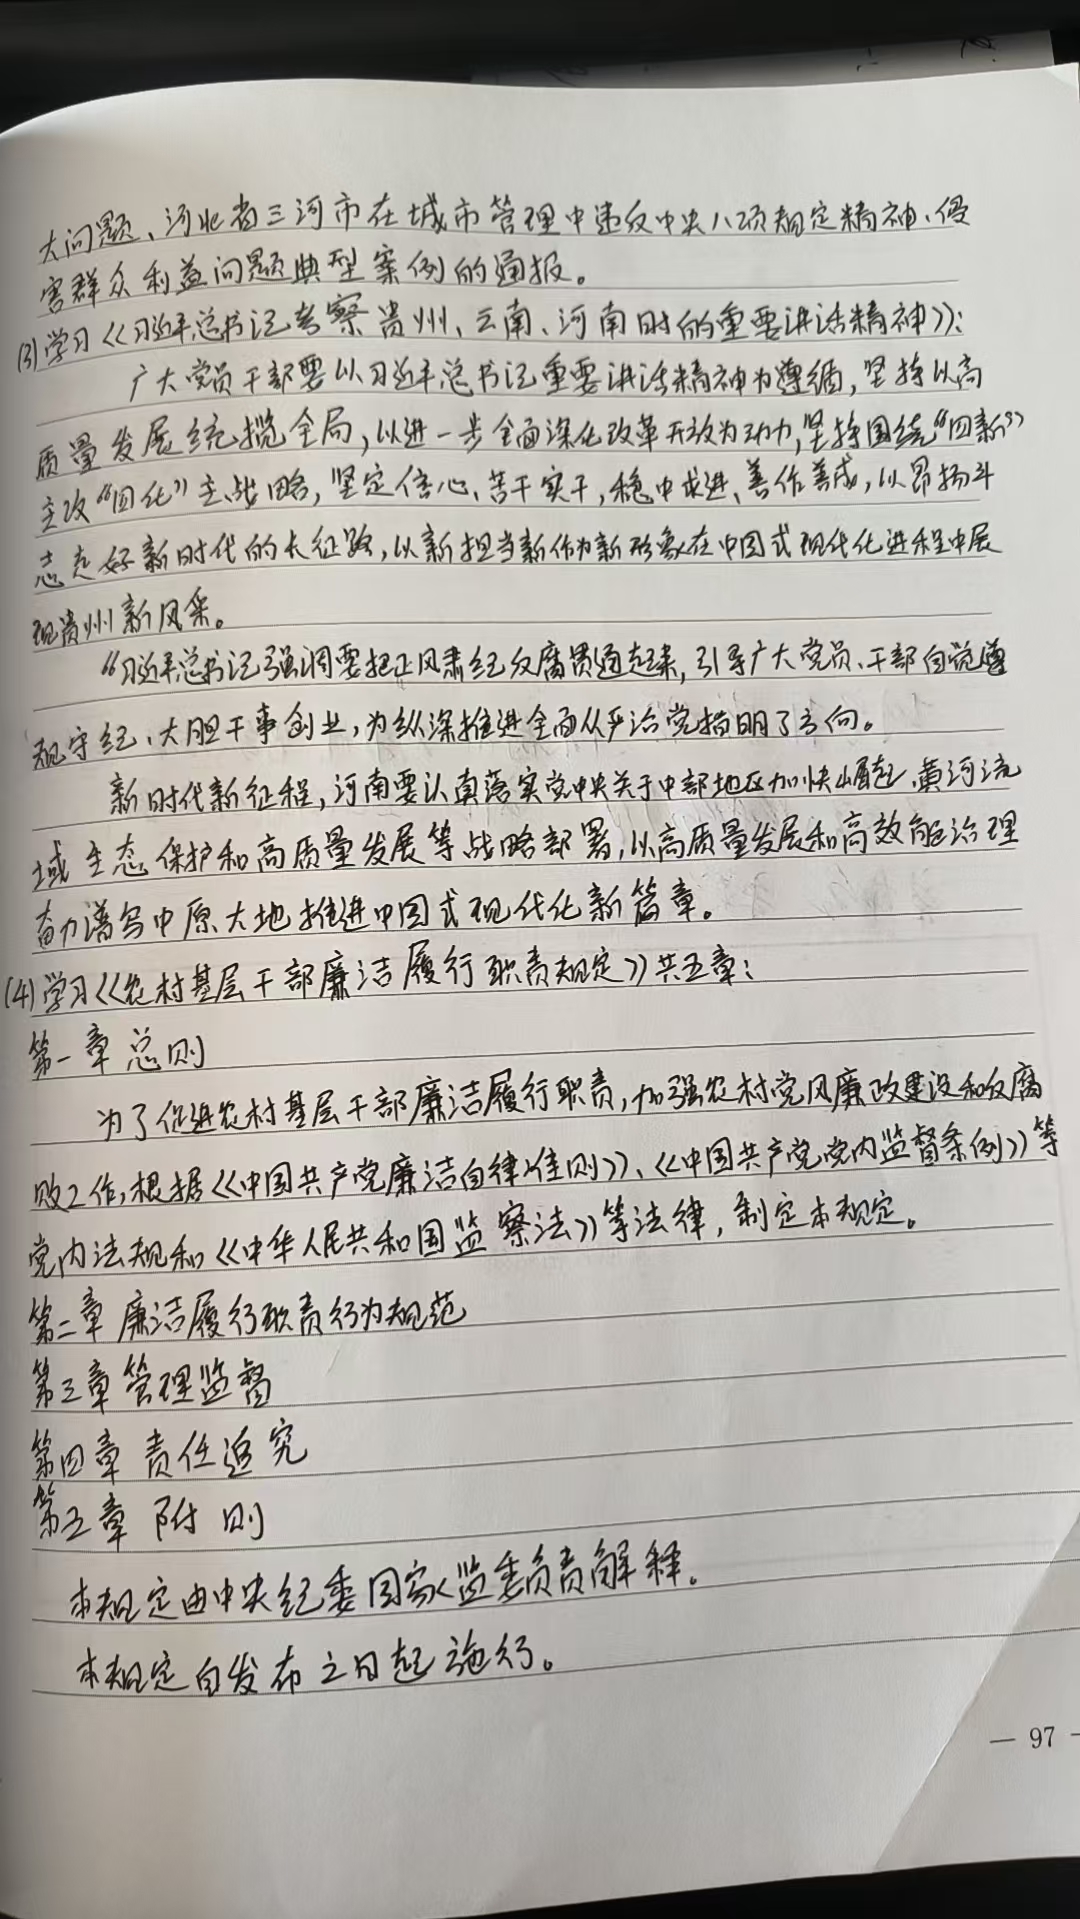 大问题、河北省三河市在城市管理中违反中央八项规定精神、侵
害群众利益问题典型案例的通报。
(3)学习《习近平总书记考察贵州、云南、河南时的重要讲话精神》：
广大党员干部要以习近平总书记重要讲话精神为遵循，坚持以高
质量发展统揽全局，以进一步全面深化改革开放为动力，坚持围绕“四新”
主攻“四化”主战略，坚定信心、苦干实干，稳中求进、善作善成，以昂扬斗
志走好新时代的长征路，以新担当新作为新形象在中国式现代化进程中展
现贵州新风采。
“习近平总书记强调要把正风肃纪反腐贯通起来，引导广大党员、干部自觉遵
规守纪、大胆干事创业，为纵深推进全面从严治党指明了方向。
新时代新征程，河南要认真落实党中央关于中部地区加快崛起、黄河流
域生态保护和高质量发展等战略部署，以高质量发展和高效能治理
奋力谱写中原大地推进中国式现代化新篇章。
(4)学习《农村基层干部廉洁履行职责规定》共五章：
第一章 总则
为了促进农村基层干部廉洁履行职责，加强农村党风廉政建设和反腐
败工作，根据《中国共产党廉洁自律准则》、《中国共产党党内监督条例》等
党内法规和《中华人民共和国监察法》等法律，制定本规定。
第二章 廉洁履行职责行为规范
第三章 管理监督
第四章 责任追究
第五章 附则
本规定由中央纪委国家监委负责解释。
本规定自发布之日起施行。
— 97 —